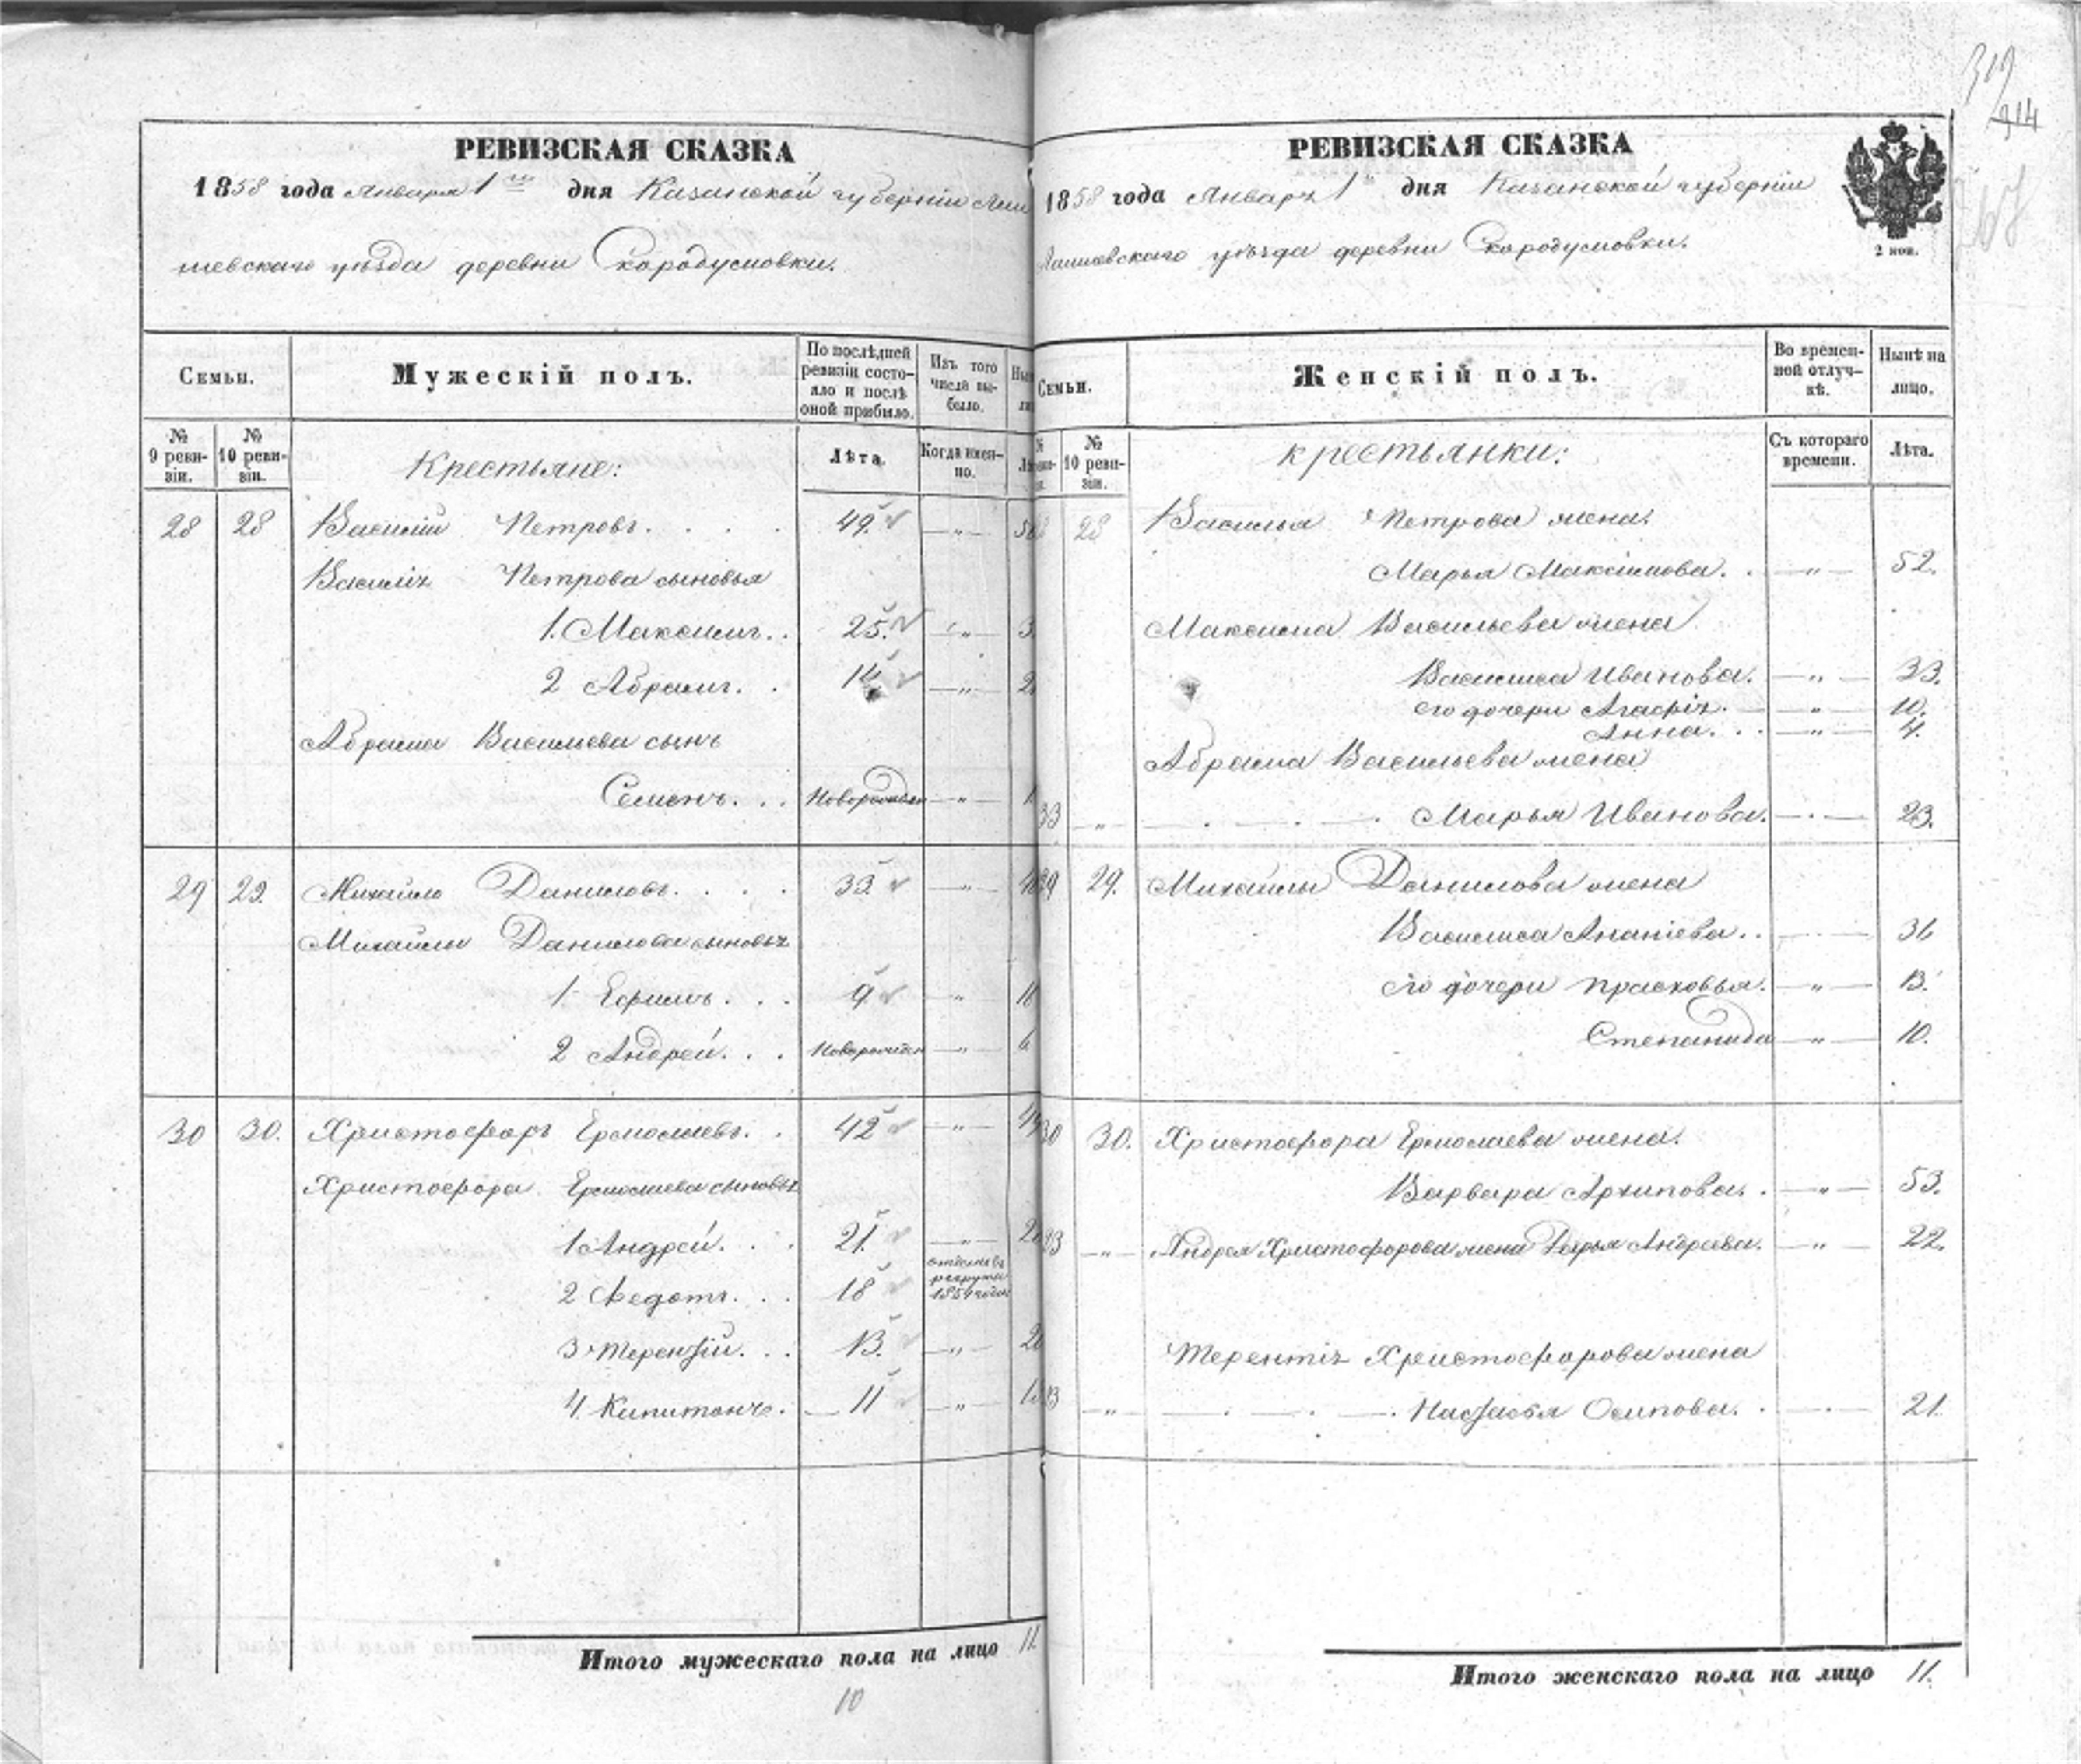 319
314
РЕВИЗСКАЯ СКАЗКА
1858 года Января 1го дня Казанской губерніи Лаи
шевскаго уѣзда деревни Скородумовки.
Семьи.
Мужескій полъ.
По послѣдней ревизіи состояло и послѣ оной прибыло.
Изъ того числа выбыло.
№ 9 ревизіи.
№ 10 ревизіи.
Крестьяне:
Лѣта.
Когда именно.
28 28 Василій Петровъ. . . . 49. — „ —
Василія Петрова сыновья
1. Максимъ. . 25. „ —
2 Абрамъ. . 14 — „ —
Абрама Васильева сынъ
Семенъ. . . Новорожден — „ —
29 29. Михайло Даниловъ. . . . 33. — „ —
Михайлы Данилова сыновья
1 Ефимъ. . . 9. — „
2 Андрей. . . Новорожден — „ — 6
30 30. Христофоръ Ермолаевъ. . 42 — „ —
Христофора Ермолаева сыновья
1 Андрей. . . 21. — „ —
2 Федотъ. . . 18 отданъ въ рекруты 1854 года
3 Терентій. . . 13. — „ —
4. Капитонъ. . — 11 — „ —
Итого мужескаго пола на лицо 11.
10
РЕВИЗСКАЯ СКАЗКА
1858 года Января 1 дня Казанской губерніи
Лаишевскаго уѣзда деревни Скородумовки.
2 коп.
Семьи.
Женскій полъ.
Во временной отлучкѣ.
Нынѣ на лицо.
№ 10 ревизіи.
крестьянки:
Съ котораго времени.
Лѣта.
28 Василья Петрова жена.
Марья Максимова. . — „ — 52.
Максима Васильева жена
Василиса Иванова. — „ — 33.
его дочери Агафія. — „ — 10.
Анна. . . — „ — 4.
Абрама Васильева жена
33 — „ — . — . — . Марья Иванова. — . — 23.
29 29. Михайлы Данилова жена
Василиса Ананіева. . — . — 36
его дочери Прасковья. — „ — 13.
Степанида — „ — 10.
30 30. Христофора Ермолаева жена.
Варвара Архипова. . — „ — 53.
33 — „ — Андрея Христофорова жена Дарья Андреева. — „ — 22.
Терентія Христофорова жена
33 — „ — . — . — . Настасья Осипова. . — . — 21.
Итого женскаго пола на лицо 11.